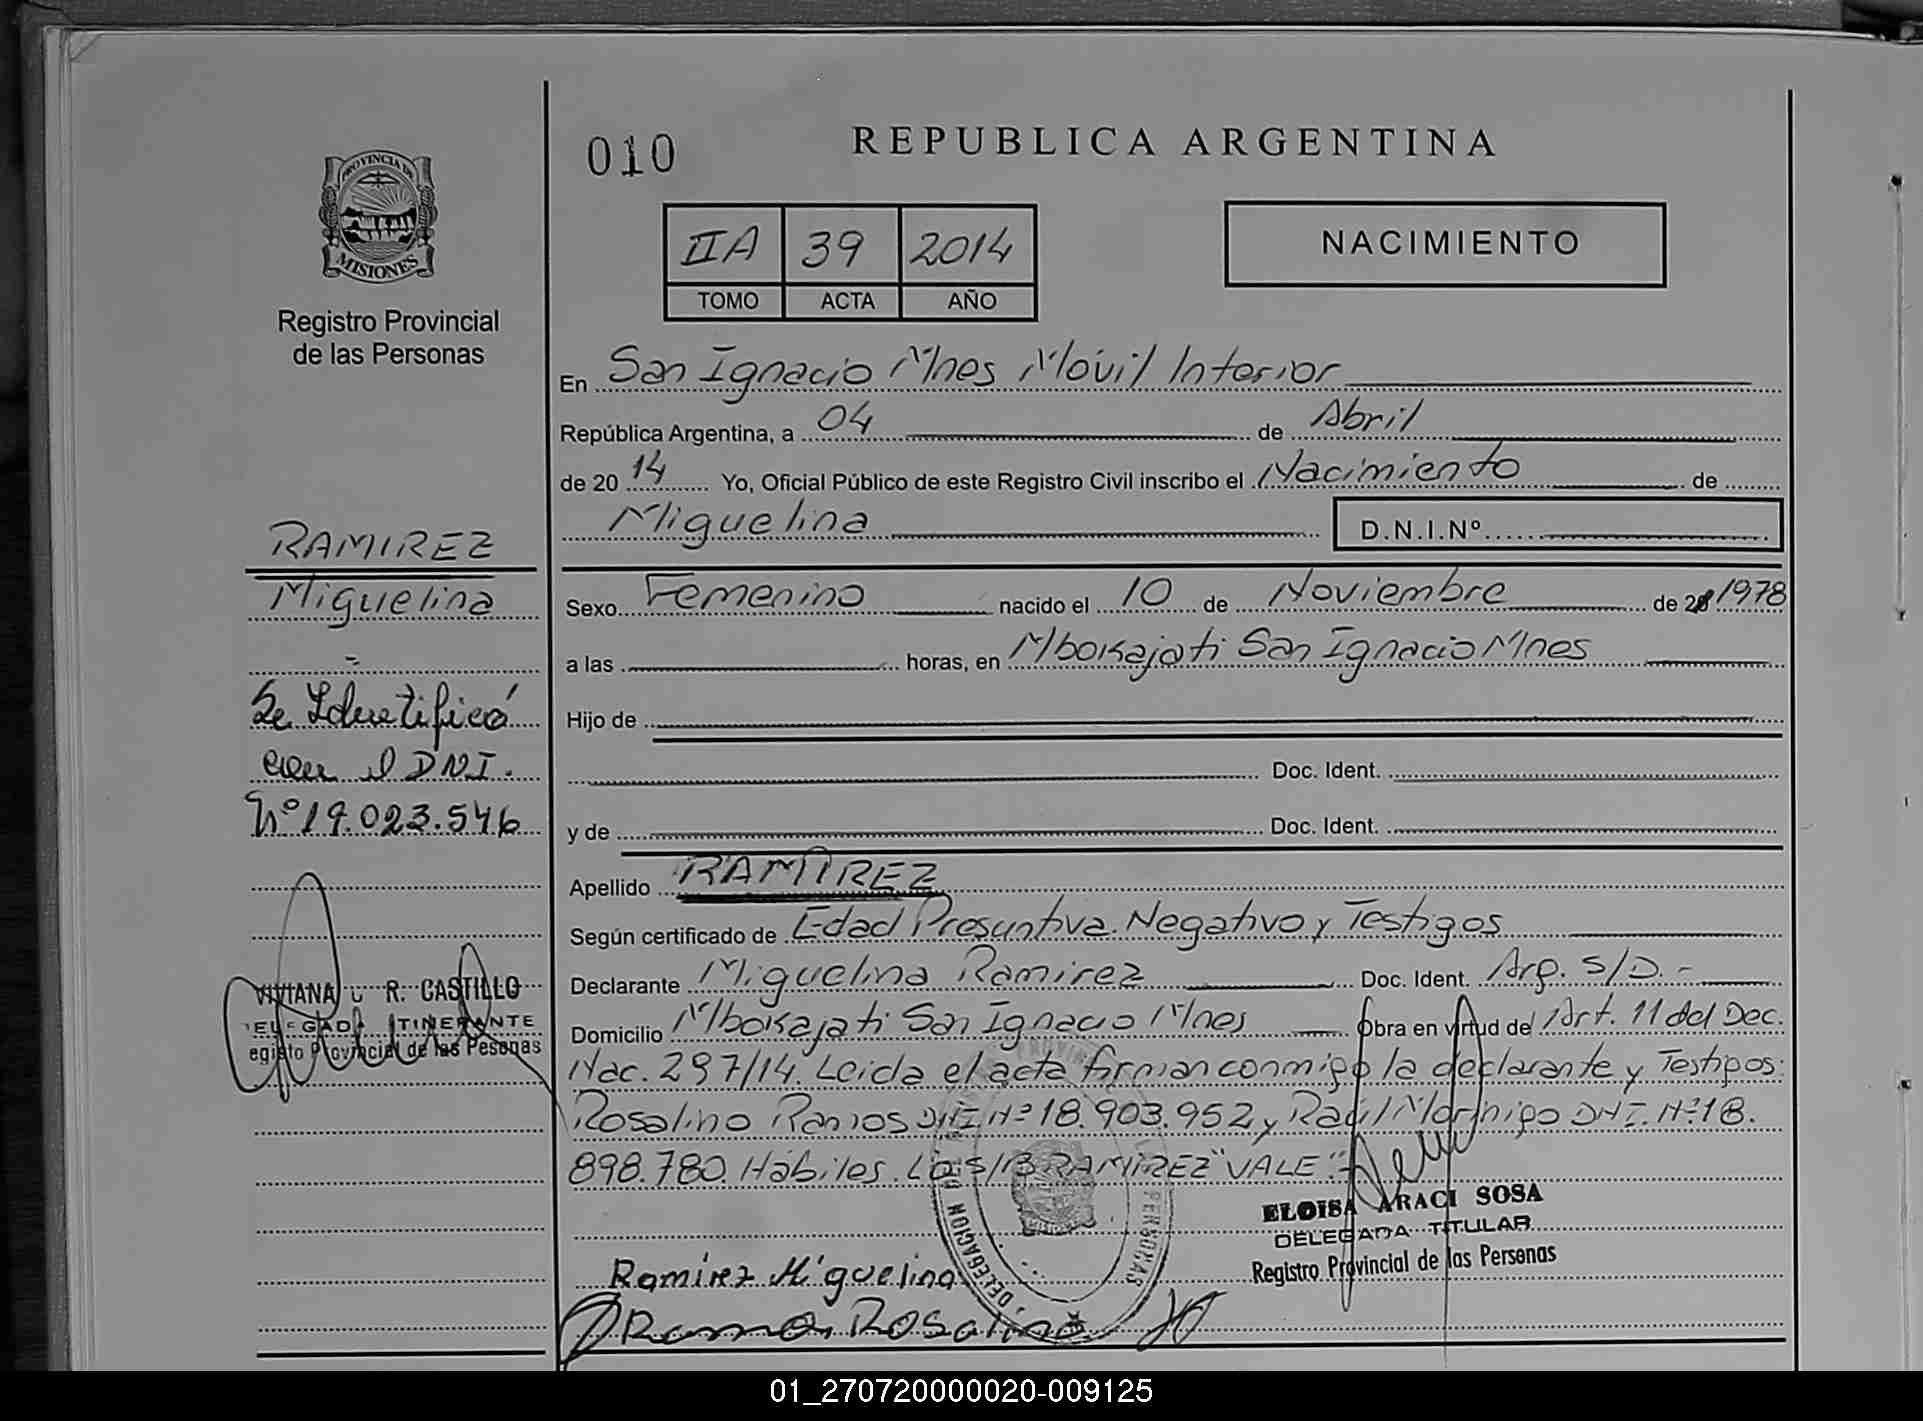 010
REPUBLICA ARGENTINA
PROVINCIA DE
MISIONES
Registro Provincial
de las Personas
IIA 39 2014
TOMO ACTA AÑO
NACIMIENTO
En San Ignacio Mnes Móvil Interior
República Argentina, a 04 de Abril
de 20 14 Yo, Oficial Público de este Registro Civil inscribo el Nacimiento de
Miguelina D.N.I.Nº
RAMIREZ
Miguelina
Se Identificó
con el D.N.I.
Nº 19.023.546
VIVIANA R. CASTILLO
DELEGADA ITINERANTE
Registro Provincial de las Pesonas
Sexo Femenino nacido el 10 de Noviembre de 1978
a las horas, en Mbokajati San Ignacio Mnes
Hijo de
Doc. Ident.
y de Doc. Ident.
Apellido RAMIREZ
Según certificado de Edad Presuntiva. Negativo y Testigos
Declarante Miguelina Ramirez Doc. Ident. Arg. S/D.-
Domicilio Mbokajati San Ignacio Mnes Obra en virtud del Art. 11 del Dec.
Nac. 297/14. Leida el acta firman conmigo la declarante y Testigos:
Rosalino Ramos DNI. Nº 18.903.952 y Raúl Morinigo DNI. Nº 18.
898.780. Hábiles. Lo S/B RAMIREZ "VALE".-
ELOISA ARACI SOSA
DELEGADA TITULAR
Registro Provincial de las Personas
Ramirez Miguelina
Ramo Rosalino
01_270720000020-009125